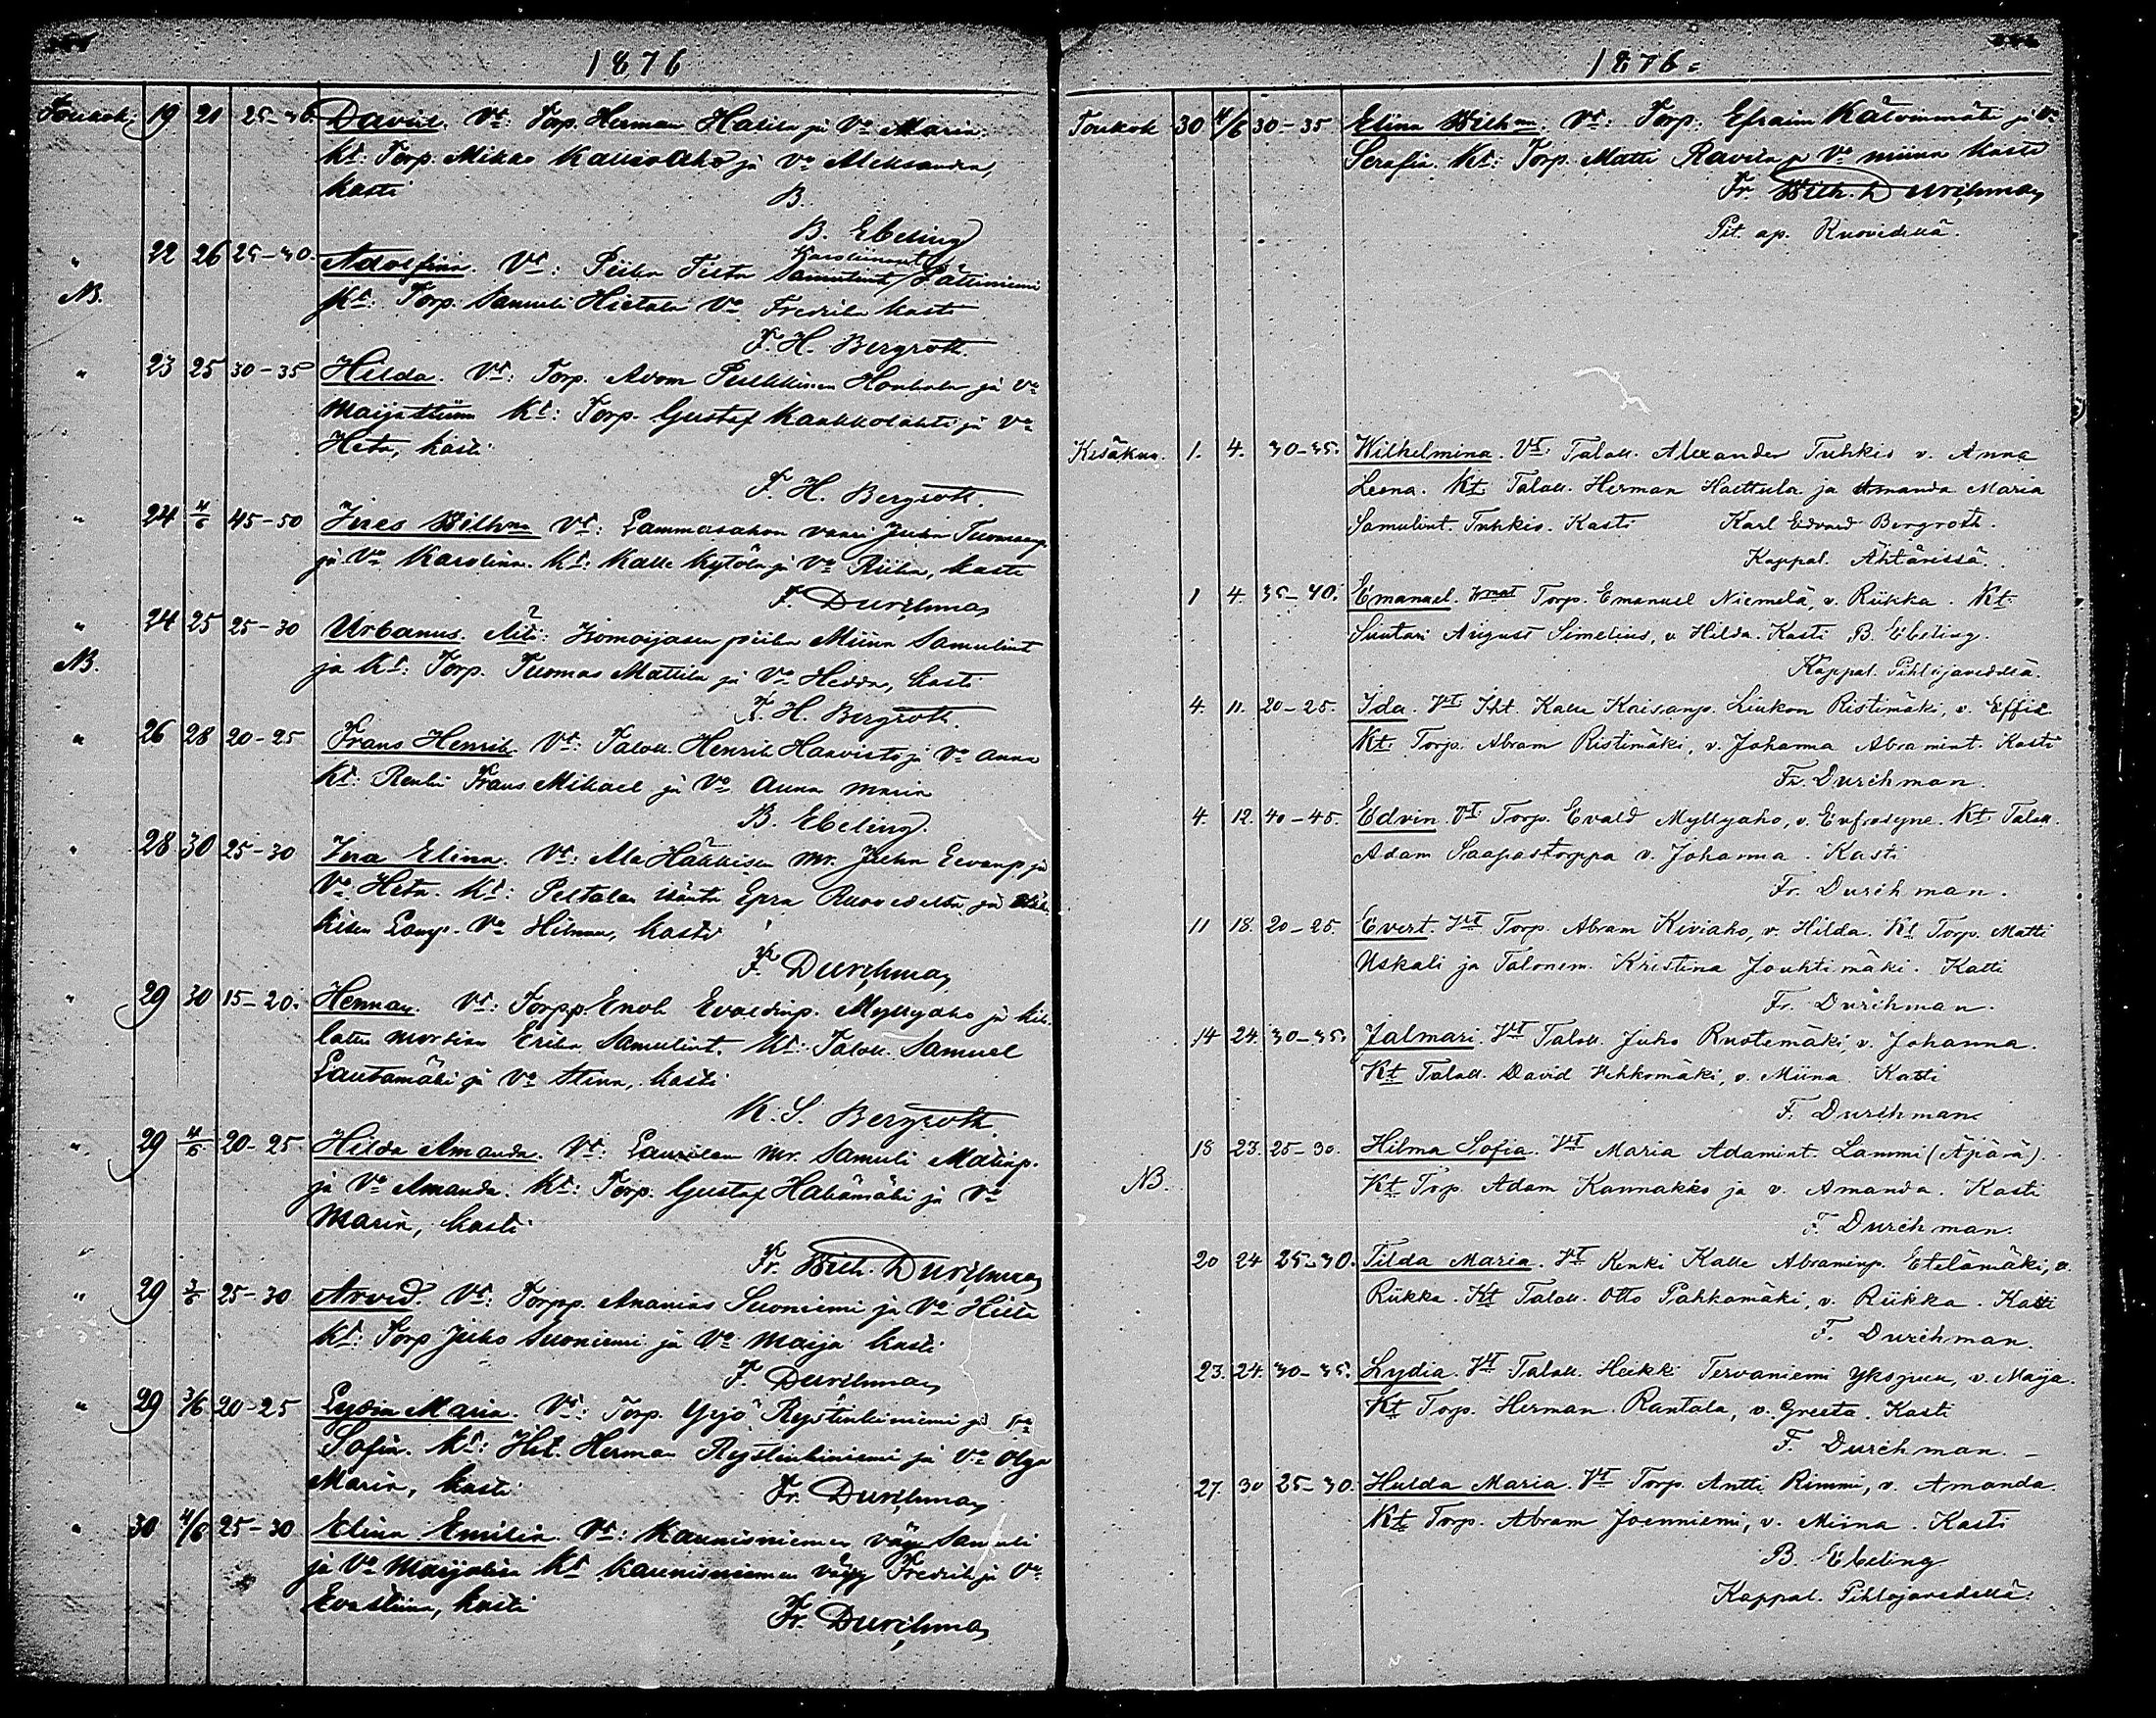 1876
Toukok. 19 21 25-30 David. Vt: Torp. Herman Hakila ja Vo Maria.
Kt: Torp. Mikko Kallioaho ja Vo Aleksandra,
kasti B.
B. Ebeling
" 22 26 25-30. Adolfina. Vt: Piika Fiita Samulint Karoliinant Pättiniemi
NB. Kt: Torp. Samuli Hietala Vo Fredrika kasti
F. H. Bergroth.
" 23 25 30-35 Hilda. Vt: Torp. Adam Pulkkinen Honkola ja Vo
Maijastiina Kt: Torp. Gustaf Kaukkolahti ja Vo
Heta, kasti
F. H. Bergroth.
" 24 4/6 45-50 Ines Wilhna Vt: Lammasahon vaari Juha Tuomaanp.
ja Vo Karolina. Kt: Kalle Kytölä ja Vo Riika, kasti
F. Durchman
" 24 25 25-30 Urbanus. Äiti: piika Miina Samulint
NB. ja Kt: Torp. Tuomas Mattila ja Vo Hedda, kasti
F. H. Bergroth.
" 26 28 20-25 Frans Henrik. Vt: Talok. Henrik Haavisto ja Vo Anna
Kt: Renki Frans Mikael ja Vo Anna Maria
B. Ebeling.
" 28 30 25-30 Ina Elina. Vt: Ala Häkkisen mr. Juha Eevanp. ja
Vo Heta. Kt: Peltolan isäntä Epra Ruovedeltä ja
kisen Vo Hilma, kasti
F. Durchman
" 29 30 15-20. Herman. Vt: Torpp. Enok Evaldinp. Myllyaho ja kih-
lattu morsian Erika Samulint. Kt: Talok. Samuel
Lautamäki ja Vo Stina, kasti
K. S. Bergroth.
" 29 4/6 20-25 Hilda Amanda. Vt: Laurilan mr. Samuli Matinp.
ja Vo Amanda. Kt: Torp. Gustaf Hakamäki ja Vo
Maria, kasti
Fr. Wilh. Durchman
" 29 3/6 25-30 Arvid. Vt: Torpp. Ananias Suoniemi ja Vo Heta
Kt: Torp Juho Suoniemi ja Vo Maija kasti
F. Durchman
" 29 3/6 20-25 Lydia Maria. Vt: Torp. Yrjö Rystinkiniemi ja Vo
Sofia. Kt: Itl. Herman Rystinkiniemi ja Vo Olga
Maria, kasti Fr. Durchman
" 30 4/6 25-30 Elina Emilia. Vt: Kaunisniemen vävy Samuli
ja Vo Maijaliisa Kt Kaunisniemen vävy Fredrik ja Vo
Evastiina, kasti Fr. Durchman
1876.
Toukok 30 4/6 30-35 Elina Wilhna. Vt: Torp. Efraim Kätvinmäki ja Vo
Serafia. Kt: Torp. Matti Ravila ja Vo Miina kasti
Fr. Wilh. Durchman
Pit. ap. Ruovedellä.
Kesäkuu. 1. 4. 30-35. Wilhelmina. Vt. Talok. Alexander Tuhkio v. Anna
Leena. Kt Talok. Herman Haettula ja Amanda Maria
Samulint. Tuhkio. Kasti Karl Edvard Bergroth.
Kappal. Ähtärissä.
1 4. 35-40. Emanuel. Vmat Torp. Emanuel Niemelä, v. Riikka. Kt.
Suutari August Simelius, v. Hilda. Kasti B. Ebeling.
Kappal. Pihlajavedellä.
4. 11. 20-25. Ida. Vt. Iht. Kalle Kaisanp. Liukon Ristimäki, v. Effie
Kt. Torp. Abram Ristimäki, v. Johanna Abramint. Kasti
Fr. Durchman.
4. 12. 40-45. Edvin. Vt Torp. Evald Myllyaho, v. Eufrosyne. Kt Talok.
Adam Saapastorppa v. Johanna. Kasti
Fr. Durchman.
11 18. 20-25. Evert. Vt Torp. Abram Kiviaho, v. Hilda. Kt Torp. Matti
Uskali ja Talonem. Kristina Jouhtimäki. Kasti
Fr. Durchman.
14 24. 30-35. Jalmari. Vt Talok. Juho Ruotemäki, v. Johanna.
Kt Talok. David Vehkomäki, v. Miina. Kasti
F. Durchman
18 23. 25-30. Hilma Sofia. Vt Maria Adamint. Lammi (Äpärä).
NB. Kt Torp. Adam Kannakko ja v. Amanda. Kasti
F. Durchman.
20 24 25-30. Tilda Maria. Vt Renki Kalle Abraminp. Etelämäki, v.
Riikka. Kt Talok. Otto Pahkamäki, v. Riikka. Kasti
F. Durchman.
23. 24. 30-35. Lydia. Vt Talok. Heikki Tervaniemi, v. Maija.
Kt Torp. Herman Rantala, v. Greeta. Kasti
F. Durchman.
27. 30 25-30. Hulda Maria. Vt Torp. Antti Rimmi, v. Amanda.
Kt Torp. Abram Joenniemi, v. Miina. Kasti
B. Ebeling
Kappal. Pihlajavedellä.